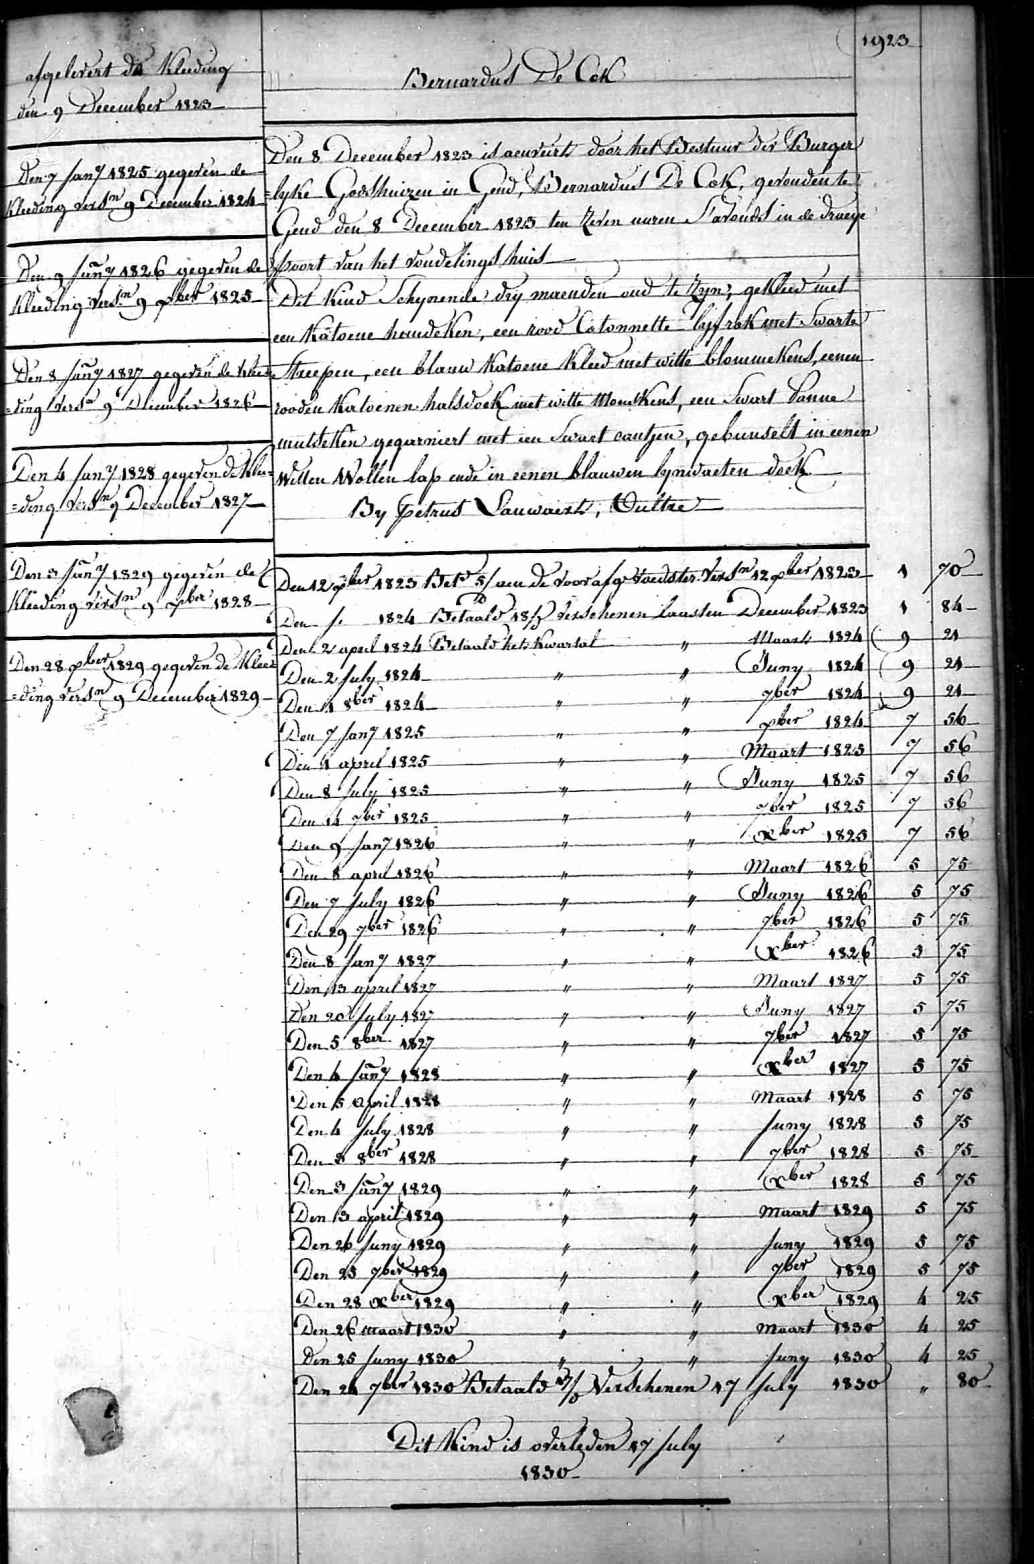 1923
afgelevert de Kleeding
den 9 December 1823
Den 7 Jany 1825 gegeven de
Kleeding versn 9 December 1824
Den 9 Jany 1826 gegeven de
Kleeding versn 9 xber 1825
Den 8 Jany 1827 gegeven de Klee=
=ding versn 9 December 1826
Den 4 Jany 1828 gegeven de Klee=
=ding versn 9 December 1827
Den 3 Jany 1829 gegeven de
Kleeding versn 9 xber 1828
Den 28 xber 1829 gegeven de Klee=
=ding versn 9 December 1829
Bernardus De Cok
Den 8 December 1823 is door het Bestuur der Burger
lyke Godshuizen in Gend, Bernardus De Cok, gevonden te
Gend den 8 December 1823 ten zeven uuren S'avonds in de draeye
Poort van het vondelings huis
Dit Kind Schynende dry maenden oud te zyn, gekleed met
een Katoene hemdeken, een rood Cotonnette lyfrok met Swarte
Streepen, een blauw Katoene Kleed met witte blommekens, eenen
rooden Katoenen halsdoek met witte Mouskens, een Swart
mutseken gegarniert met een Swart cantjen, gebunselt in eenen
Witten Wollen lap ende in eenen blauwen lynwaeten doek
By Petrus Lauwaert, Oultre
Den 12 xber 1823 Betd 5/ aen de voorafge Voedster versn 12 xber 1823 1 70
Den 1824 Betaald 18/ verschenen laasten December 1823 1 84
Den 2 april 1824 Betaald het Kwartal " Maart 1824 9 21
Den 2 July 1824 " " Juny 1824 9 21
Den 4 8ber 1824 " " 7ber 1824 9 21
Den 7 Jany 1825 " " xber 1824 7 56
Den 8 april 1825 " " Maart 1825 7 56
Den 8 July 1825 " " Juny 1825 7 56
Den 14 7ber 1825 " " 7ber 1825 7 56
Den 9 Jany 1826 " " xber 1825 7 56
Den 8 april 1826 " " Maart 1826 5 75
Den 7 July 1826 " " Juny 1826 5 75
Den 29 7ber 1826 " " 7ber 1826 5 75
Den 8 Jany 1827 " " xber 1826 5 75
Den 13 april 1827 " " Maart 1827 5 75
Den 20 July 1827 " " Juny 1827 5 75
Den 5 8ber 1827 " " 7ber 1827 5 75
Den 4 Jany 1828 " " xber 1827 5 75
Den 15 April 1828 " " Maart 1828 5 75
Den 4 July 1828 " " Juny 1828 5 75
Den 3 8ber 1828 " " 7ber 1828 5 75
Den 3 Jany 1829 " " xber 1828 5 75
Den 13 april 1829 " " Maart 1829 5 75
Den 26 Juny 1829 " " Juny 1829 5 75
Den 25 7ber 1829 " " 7ber 1829 5 75
Den 28 xber 1829 " " xber 1829 4 25
Den 26 maart 1830 " " Maart 1830 4 25
Den 25 Juny 1830 " " Juny 1830 4 25
Den 24 7ber 1830 Betaald Verschenen 17 July 1830 " 80
Dit Kind is overleden 17 July
1830